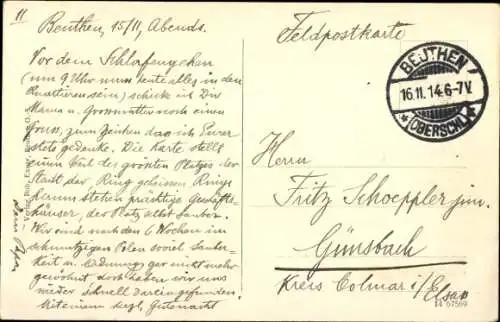 11
Beuthen, 15/11, Abends.
Vor dem Schlafengehen
(um 9 Uhr muss heute alles in den
Quartieren sein) schicke ich Dir
Mama u. Grossmutter noch einen
Gruss, zum Zeichen dass ich Eurer
stets gedenke. Die Karte stellt
einen Teil des grössten Platzes der
Stadt der Ring geheissen. Rings
herum stehen prächtige Geschäfts-
häuser, der Platz selbst sauber.
Wir sind nach den 6 Wochen im
schmutzigen Polen soviel Sauber-
keit u. Ordnung gar nicht mehr
gewöhnt doch haben wir uns
wieder schnell dareingefunden.
herzl. Gutenacht
Dein Papa
Feldpostkarte
BEUTHEN
16.11.14.6-7V.
*(OBERSCHL)*
Herrn
Fritz Schoeppler jun.
Günsbach
Kreis Colmar i/Elsass
14 67569